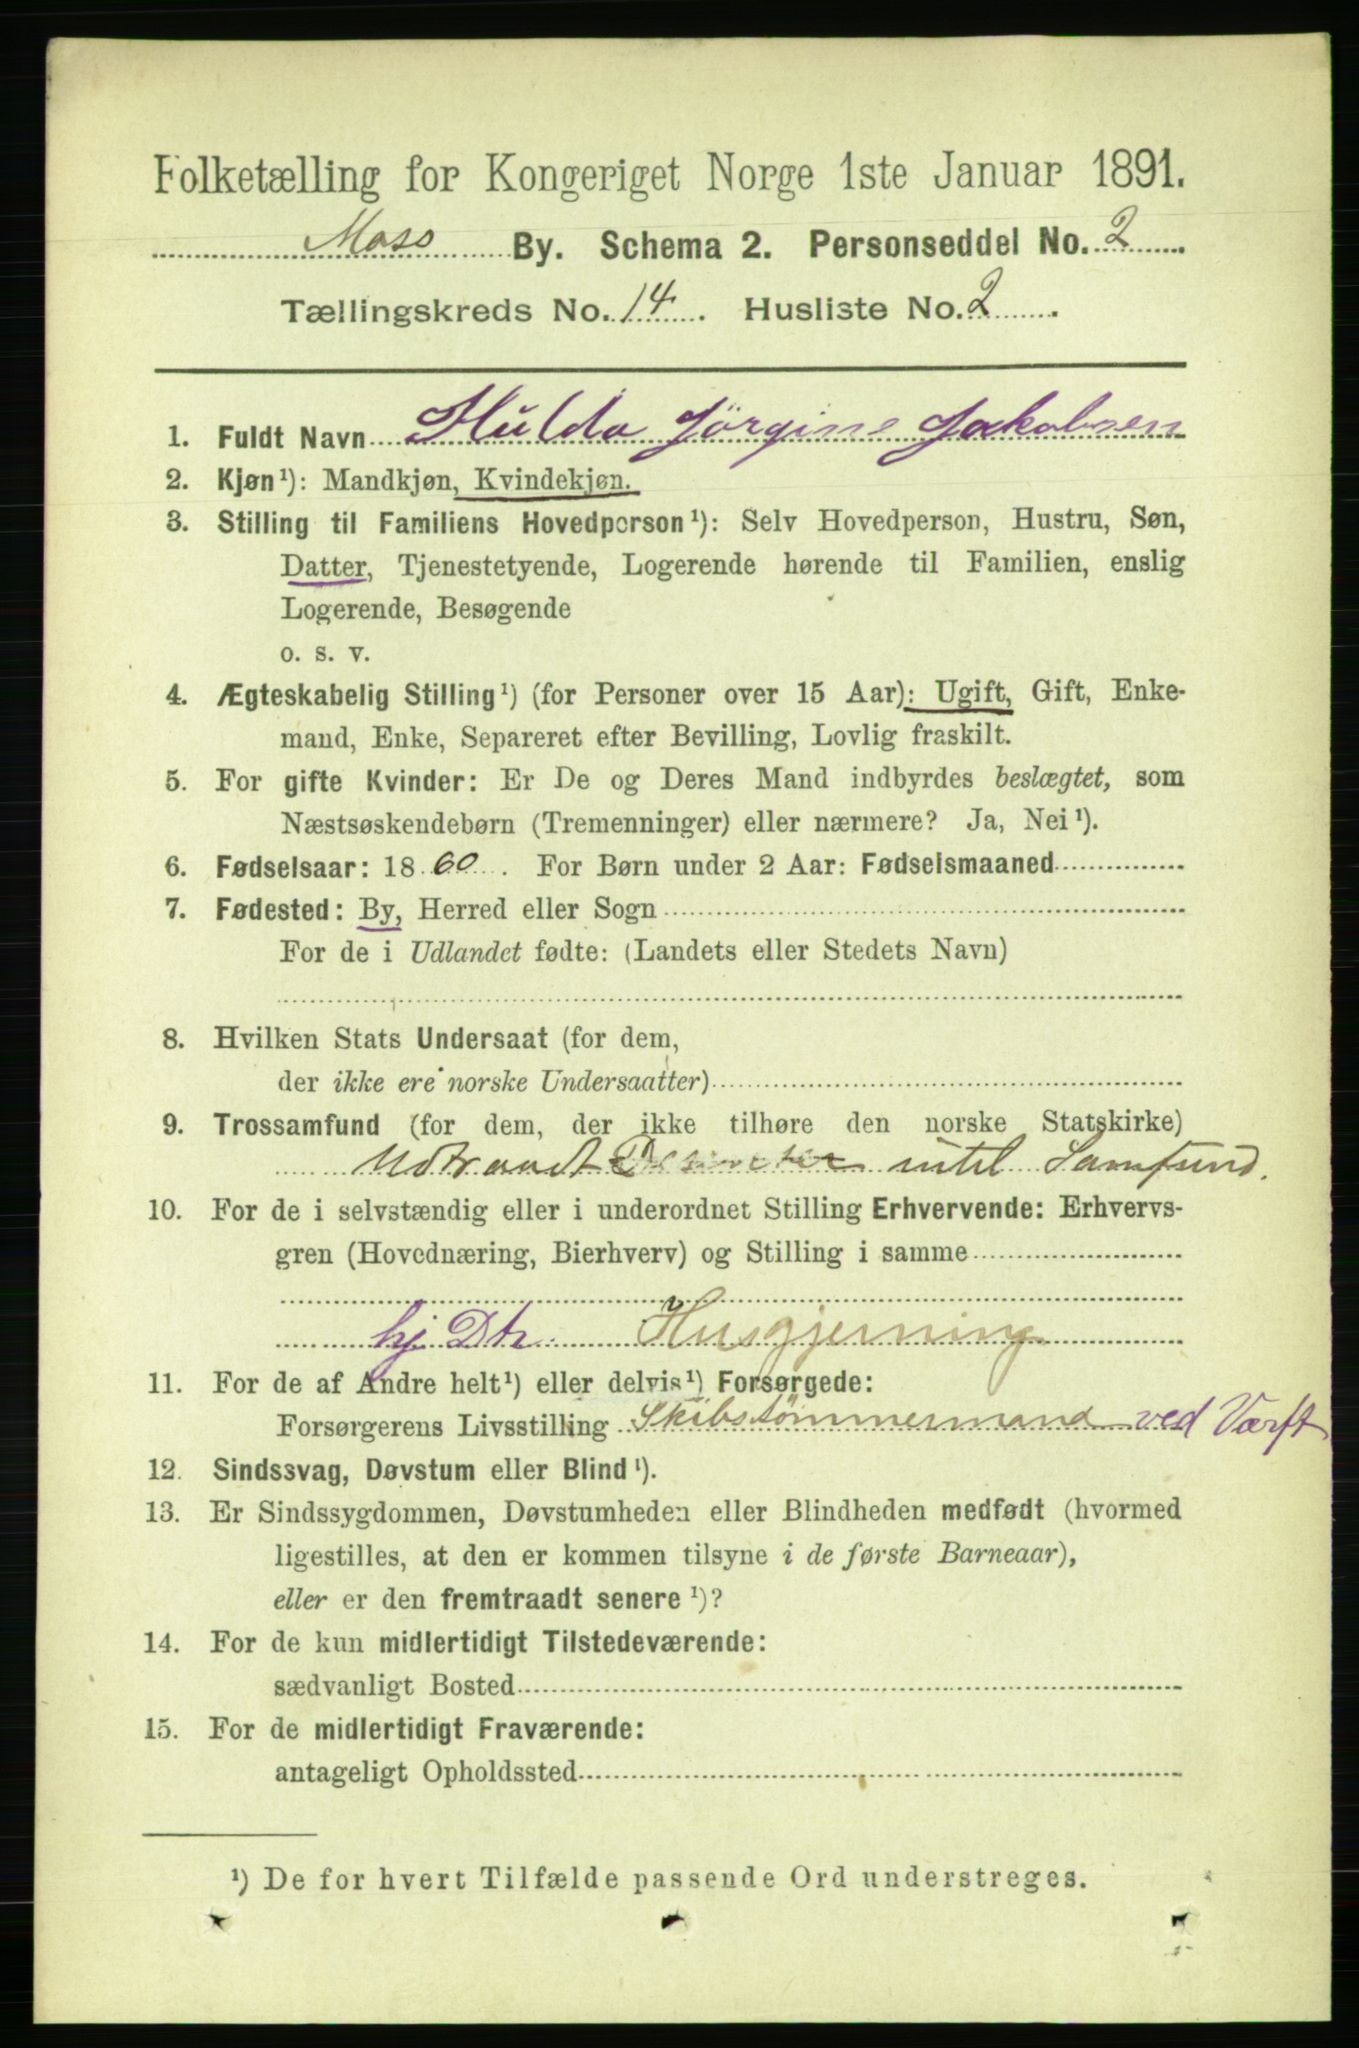 Folketælling for Kongeriget Norge 1ste Januar 1891.
Moss By. Schema 2. Personseddel No. 2
Tællingskreds No. 14. Husliste No. 2.
1. Fuldt Navn Hulda Jørgine Jakobsen
2. Kjøn¹): Mandkjøn, Kvindekjøn.
3. Stilling til Familiens Hovedperson¹): Selv Hovedperson, Hustru, Søn,
Datter, Tjenestetyende, Logerende hørende til Familien, enslig
Logerende, Besøgende
o. s. v.
4. Ægteskabelig Stilling¹) (for Personer over 15 Aar): Ugift, Gift, Enke-
mand, Enke, Separeret efter Bevilling, Lovlig fraskilt.
5. For gifte Kvinder: Er De og Deres Mand indbyrdes beslægtet, som
Næstsøskendebørn (Tremenninger) eller nærmere? Ja, Nei¹).
6. Fødselsaar: 1860. For Børn under 2 Aar: Fødselsmaaned
7. Fødested: By, Herred eller Sogn
For de i Udlandet fødte: (Landets eller Stedets Navn)
8. Hvilken Stats Undersaat (for dem,
der ikke ere norske Undersaatter)
9. Trossamfund (for dem, der ikke tilhøre den norske Statskirke)
Udtraadt intet Samfund.
10. For de i selvstændig eller i underordnet Stilling Erhvervende: Erhvervs-
gren (Hovednæring, Bierhverv) og Stilling i samme
hj. Dtr. Husgjerning
11. For de af Andre helt¹) eller delvis¹) Forsørgede:
Forsørgerens Livsstilling Skibstømmermand ved Værft
12. Sindssvag, Døvstum eller Blind¹).
13. Er Sindssygdommen, Døvstumheden eller Blindheden medfødt (hvormed
ligestilles, at den er kommen tilsyne i de første Barneaar),
eller er den fremtraadt senere¹)?
14. For de kun midlertidigt Tilstedeværende:
sædvanligt Bosted
15. For de midlertidigt Fraværende:
antageligt Opholdssted
¹) De for hvert Tilfælde passende Ord understreges.